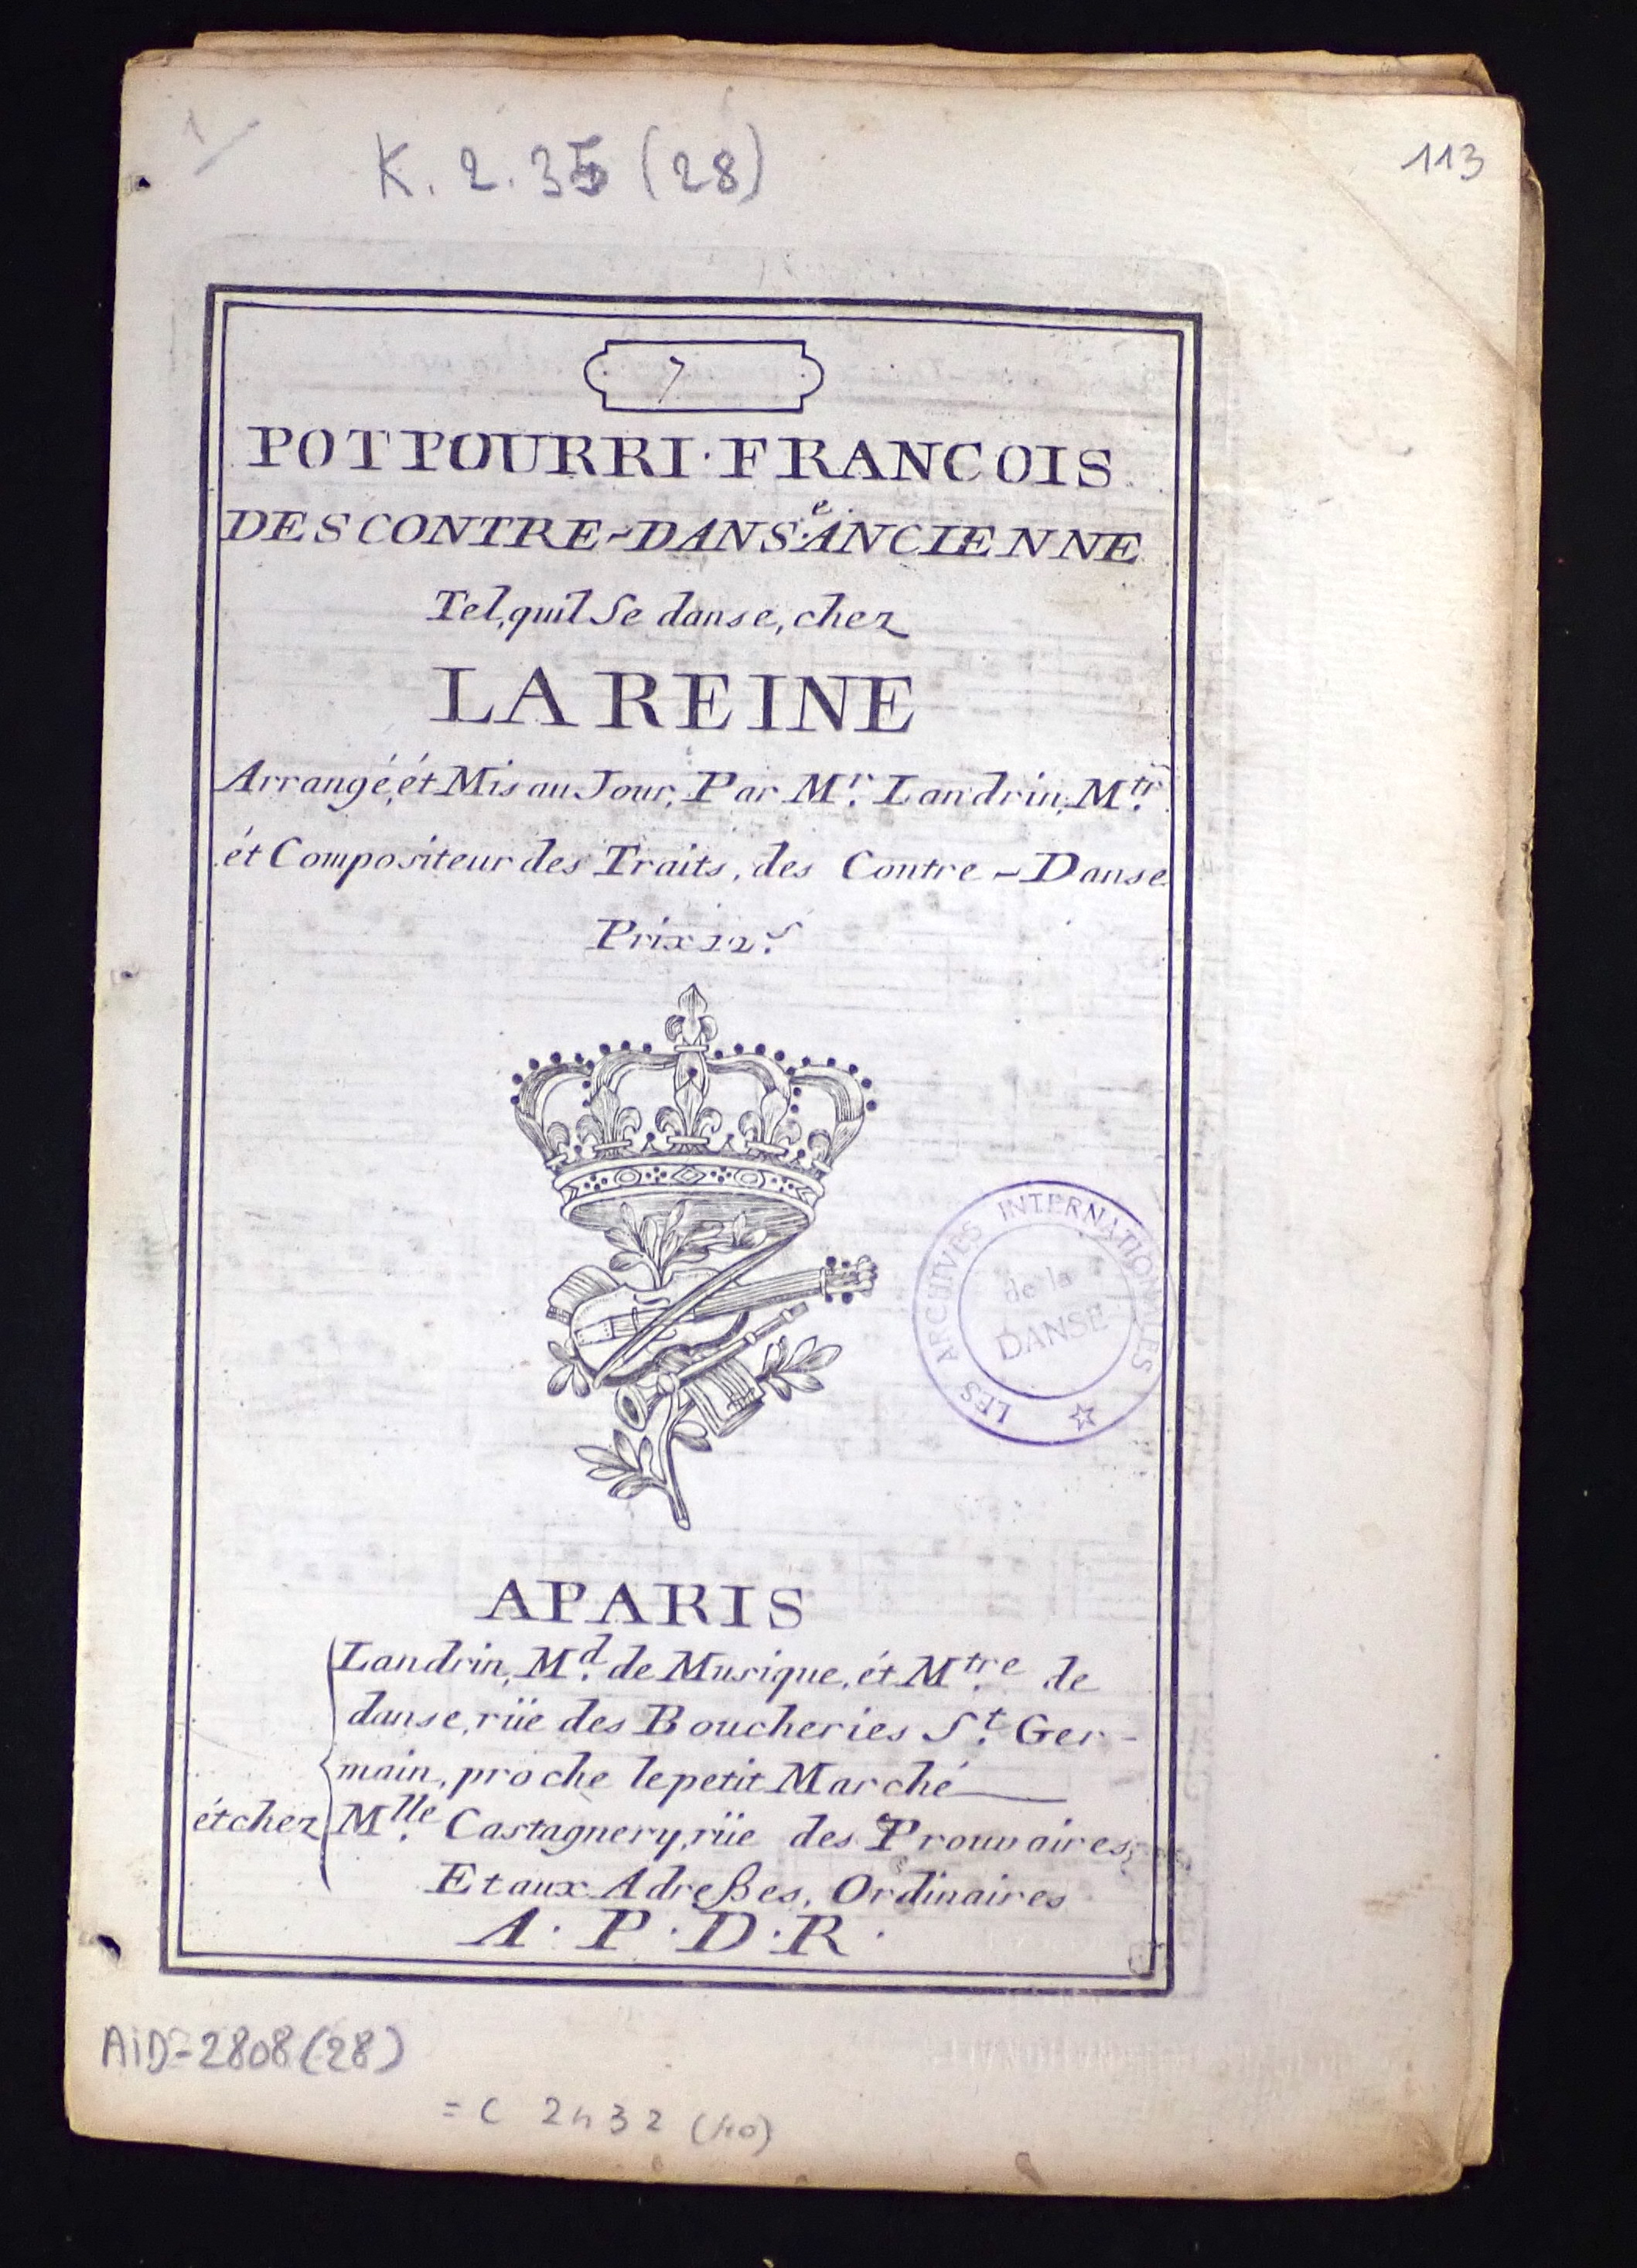 K. 2. 35 (28)
113
7
POTPOURRI·FRANCOIS
DES CONTRE-DANSe. ANCIENNE
Tel, quil Se danse, chez
LA REINE
Arrangé, ét Mis au Jour, Par Mr. Landrin, Mtr.
ét Compositeur des Traits, des Contre-Danse
Prix 12.s
LES ARCHIVES INTERNATIONALES
de la
DANSE
A PARIS
Landrin, Md. de Musique, ét Mtre. de
danse, rüe des Boucheries St. Ger-
main, proche le petit Marché
ét chez Mlle. Castagnery, rüe des Prouvaires
Et aux Adreßes, Ordinaires
A. P. D. R.
AID-2808 (28)
= C 2432 (40)